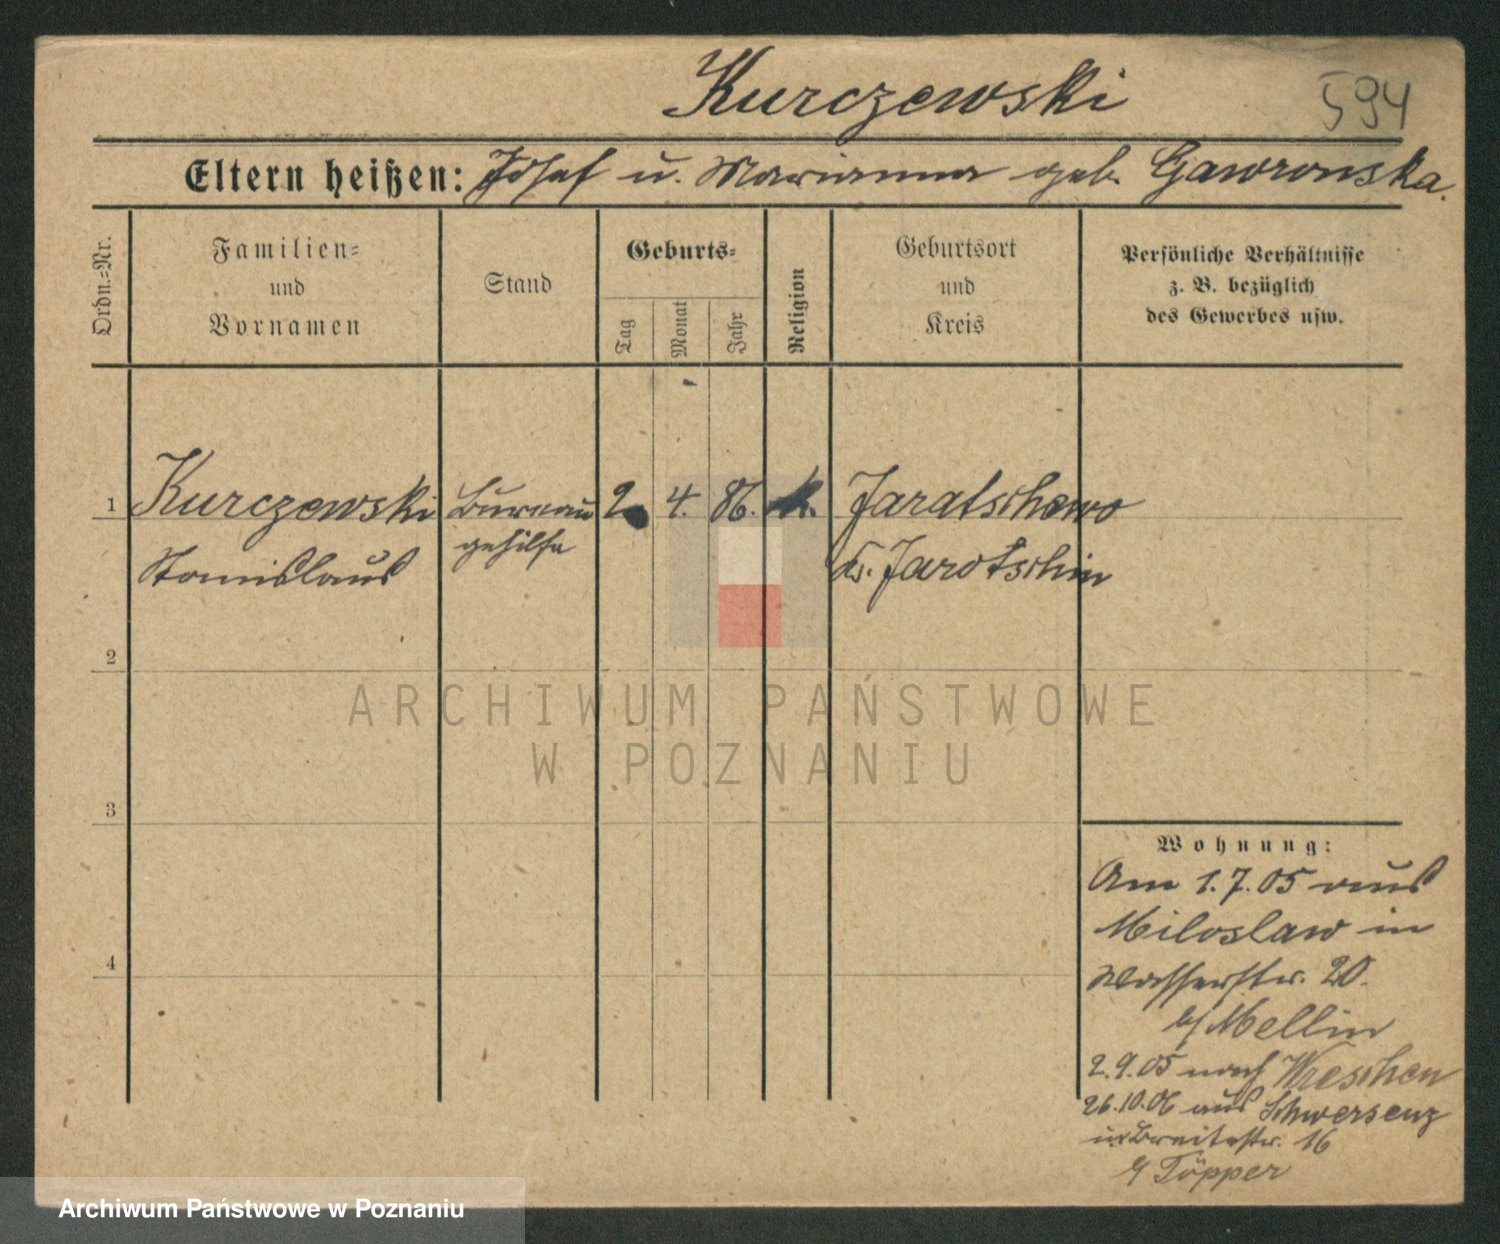 Kurczewski
594
Eltern heißen: Josef u. Marianna geb. Gawronska.
Ordn.=Nr.
Familien=
und
Vornamen
Stand
Geburts=
Tag
Monat
Jahr
Religion
Geburtsort
und
Kreis
Persönliche Verhältnisse
z. B. bezüglich
des Gewerbes usw.
1 Kurczewski Bureau 2. 4. 86. k. Jaratschewo
Stanislaus gehilfe Kr. Jarotschin
2
3
4
Wohnung:
Am 1.7.05 aus
Miloslaw in
Wasserstr. 20.
b/ Mellin
2.9.05 nach Wreschen
26.10.06 aus Schwersenz
in Breitestr. 16
b/ Töpper
ARCHIWUM PAŃSTWOWE
W POZNANIU
Archiwum Państwowe w Poznaniu